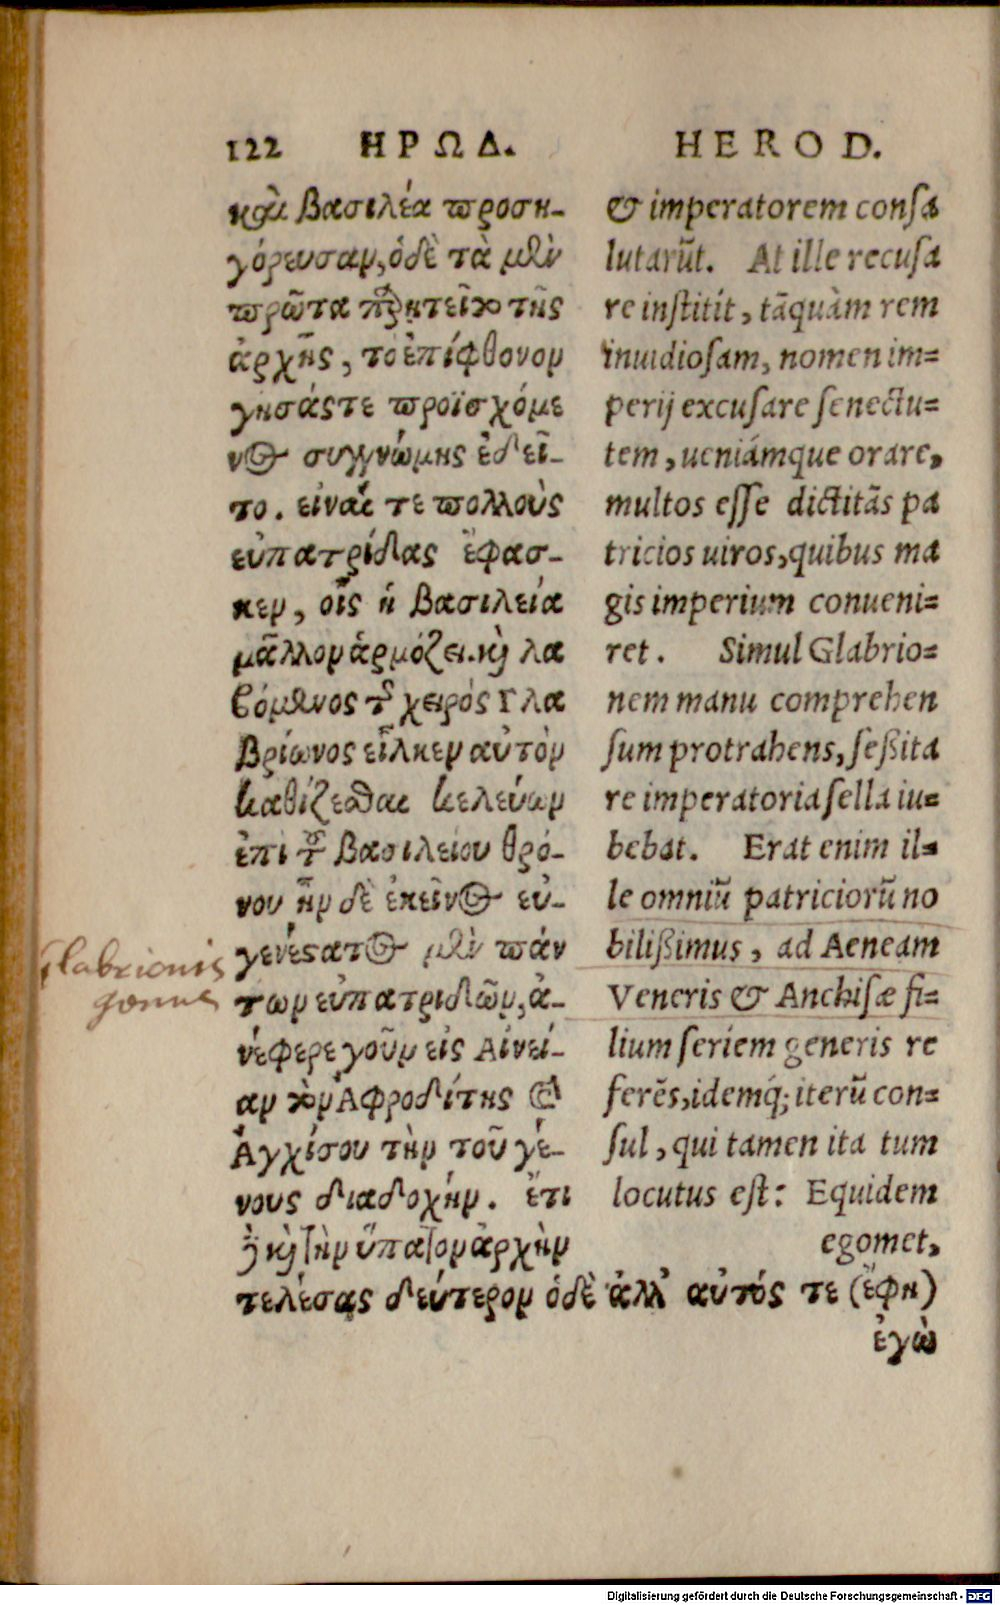 122 ΗΡΩΔ. HEROD.
καὶ βασιλέα προση-
γόρευσαν, ὁ δὲ τὰ μὲν
πρῶτα παρῃτεῖτο τῆς
ἀρχῆς, τὸ ἐπίφθονον
γησάς τε προϊσχόμε
νος συγγνώμης ἐδεῖ-
το. εἶναί τε πολλοὺς
εὐπατρίδας ἔφασ-
κεν, οἷς ἡ βασιλεία
μᾶλλον ἁρμόζει. καὶ λα
βόμενος τῆς χειρὸς Γλα
βρίωνος εἷλκεν αὐτὸν
καθίζεσθαι κελεύων
ἐπὶ τοῦ βασιλείου θρό-
νου ἦν δὲ ἐκεῖνος εὐ-
γενέστατος μὲν πάν
των εὐπατριδῶν, ἀ-
νέφερε γοῦν εἰς Αἰνεί-
αν τὸν Ἀφροδίτης καὶ
Ἀγχίσου τὴν τοῦ γέ-
νους διαδοχήν. ἔτι
δὲ καὶ τὴν ὕπατον ἀρχὴν
τελέσας δεύτερον ὁ δὲ ἀλλ' αὐτός τε (ἔφη)
ἐγὼ
& imperatorem consa
lutarūt. At ille recusa
re institit, tāquàm rem
inuidiosam, nomen im=
perij excusare senectu=
tem, ueniámque orare,
multos esse dictitās pa
tricios uiros, quibus ma
gis imperium conueni=
ret. Simul Glabrio=
nem manu comprehen
sum protrahens, seßita
re imperatoria sella iu=
bebat. Erat enim il=
le omniū patriciorū no
bilißimus, ad Aeneam
Veneris & Anchisæ fi=
lium seriem generis re
ferēs, idemq́; iterū con=
sul, qui tamen ita tum
locutus est: Equidem
egomet,
Glabrionis
genus
Digitalisierung gefördert durch die Deutsche Forschungsgemeinschaft - DFG